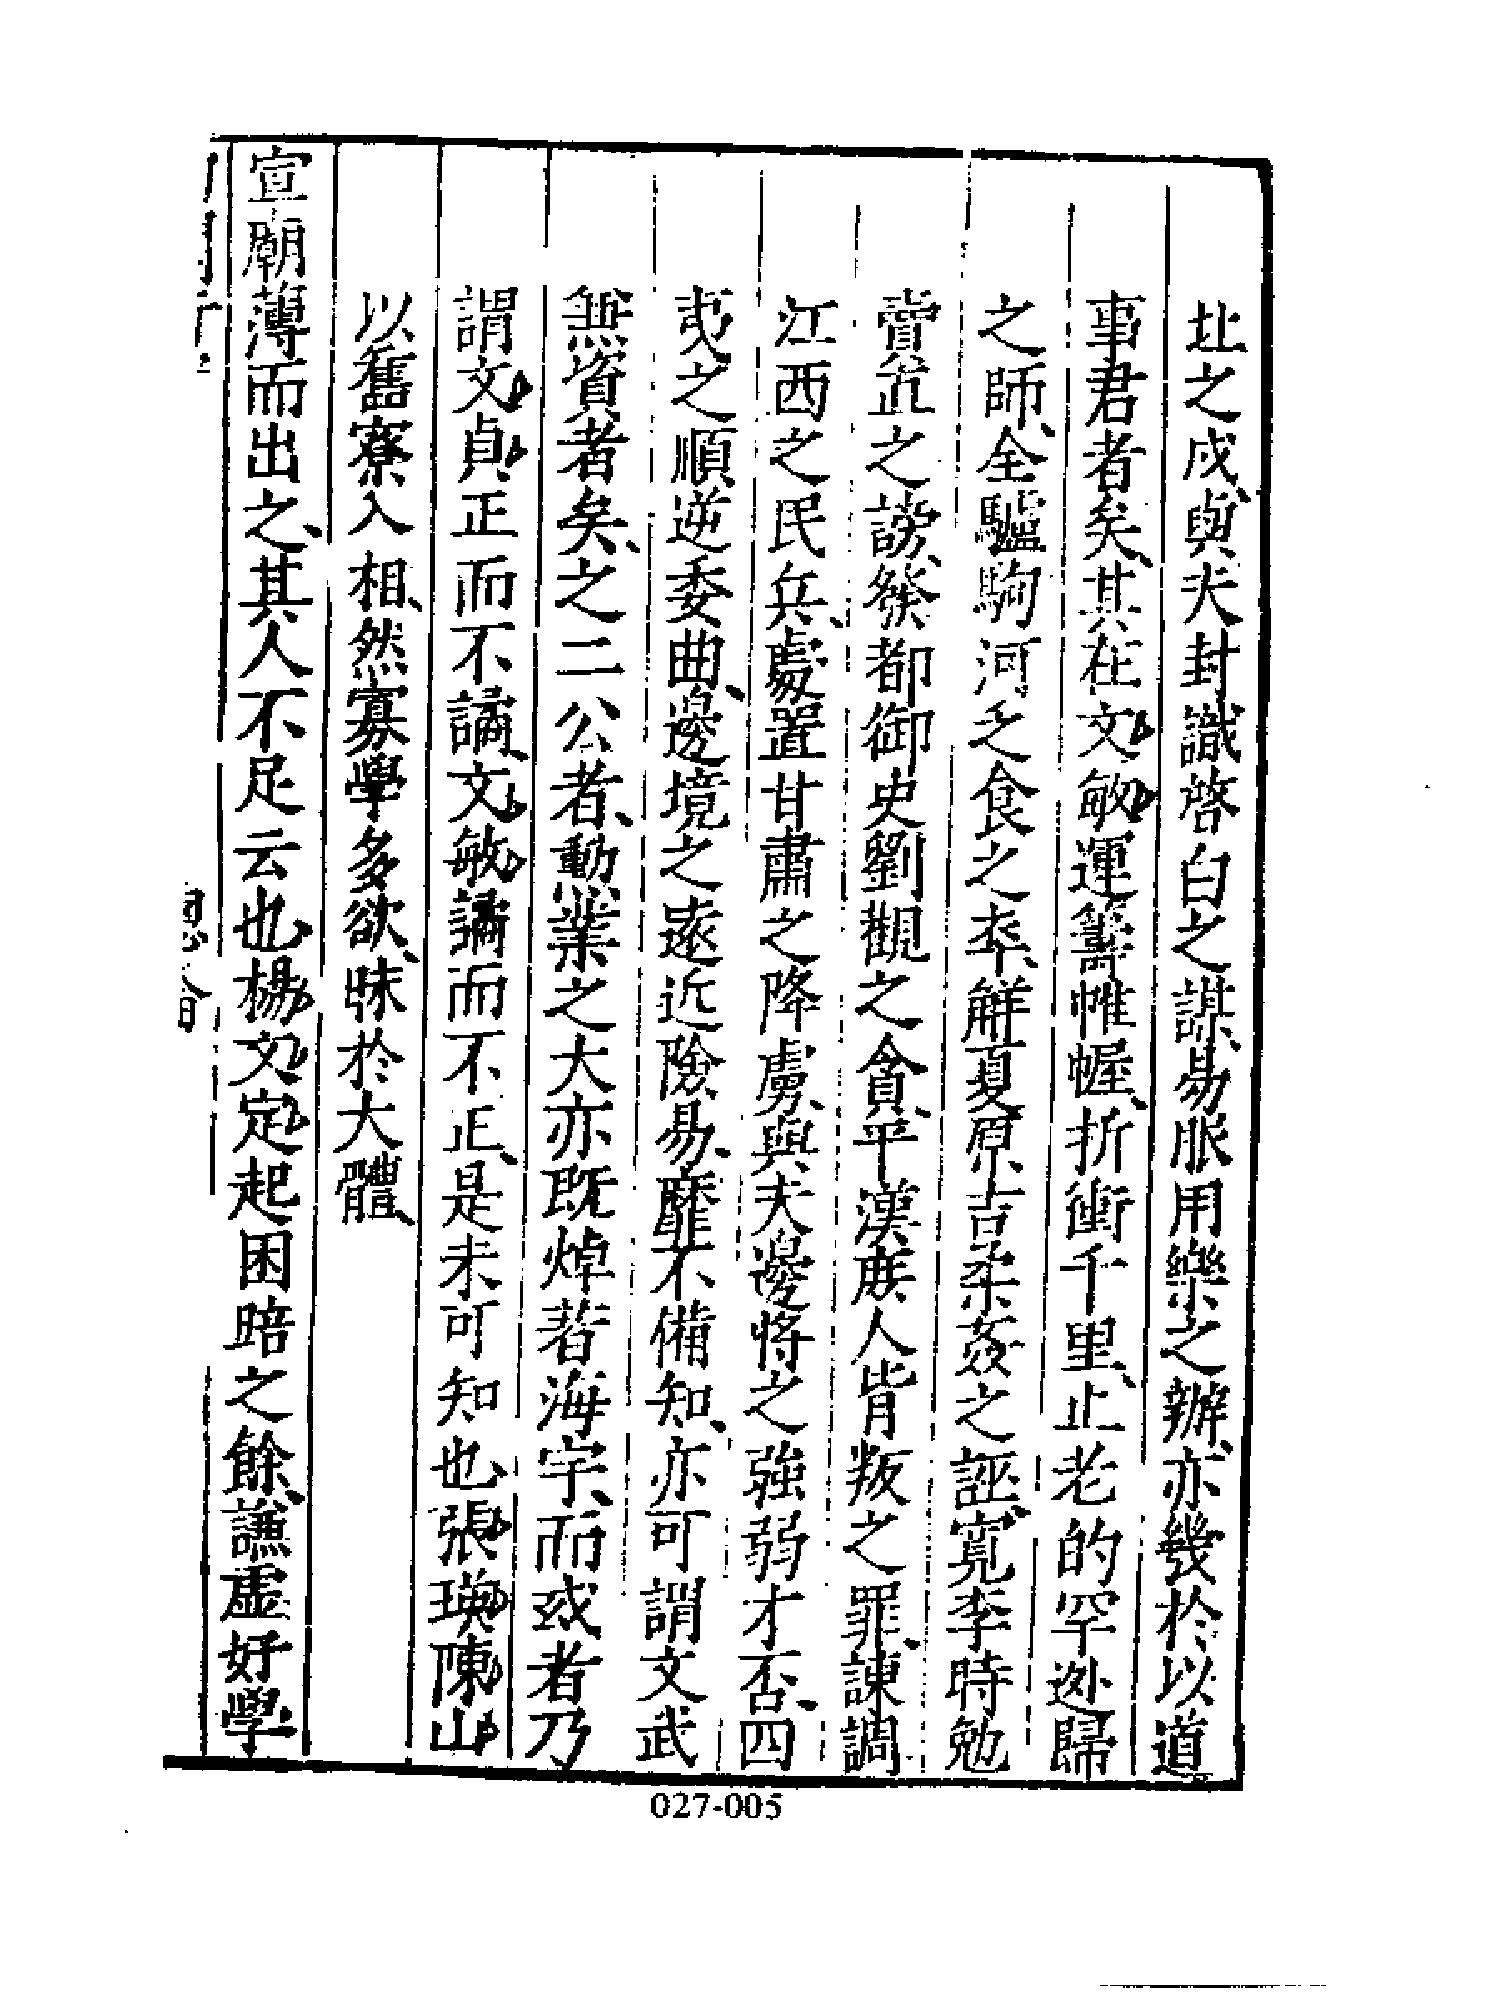 址之戍與夫封識啓白之謀易服用樂之辦亦幾於以道
事君者矣其在文敏運籌帷幄折衝千里止老的罕迯歸
之師全驢駒河乏食之卒解夏原吉柔姦之誣寬李時勉
賣直之謗發都御史劉觀之貪平漢庻人背叛之罪諫調
江西之民兵處置甘肅之降虜與夫邊將之強弱才否四
夷之順逆委曲邊境之遠近險易靡不備知亦可謂文武
無資者矣之二公者勳業之大亦既焯著海宇而或者乃
謂文貞正而不譎文敏譎而不正是未可知也張瑛陳山
以舊寮入相然寡學多欲昧於大體
宣廟薄而出之其人不足云也楊文定起困踣之餘謙虛好學
027-005